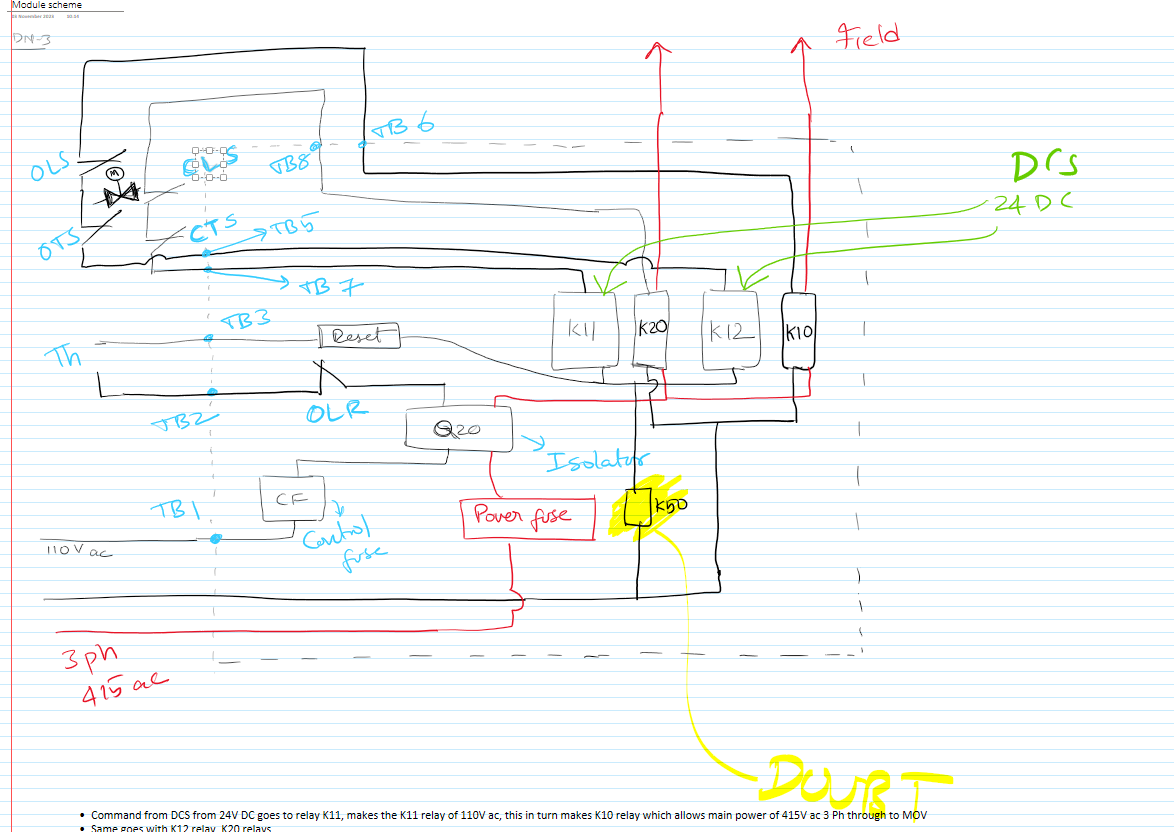 Module scheme
08 November 2023 10:39
DN-3
Field
TB 6
OLS
CLS
TB8
M
DCS
24 DC
OTS
CTS
TB5
TB 7
K11
K20
K12
K10
TB3
Reset
Th
TB2
OLR
Q20
Isolator
CF
K50
Power fuse
TB1
Control
fuse
110V ac
3 ph
415 ac
DOUBT
• Command from DCS from 24V DC goes to relay K11, makes the K11 relay of 110V ac, this in turn makes K10 relay which allows main power of 415V ac 3 Ph through to MOV
• Same goes with K12 relay, K20 relays